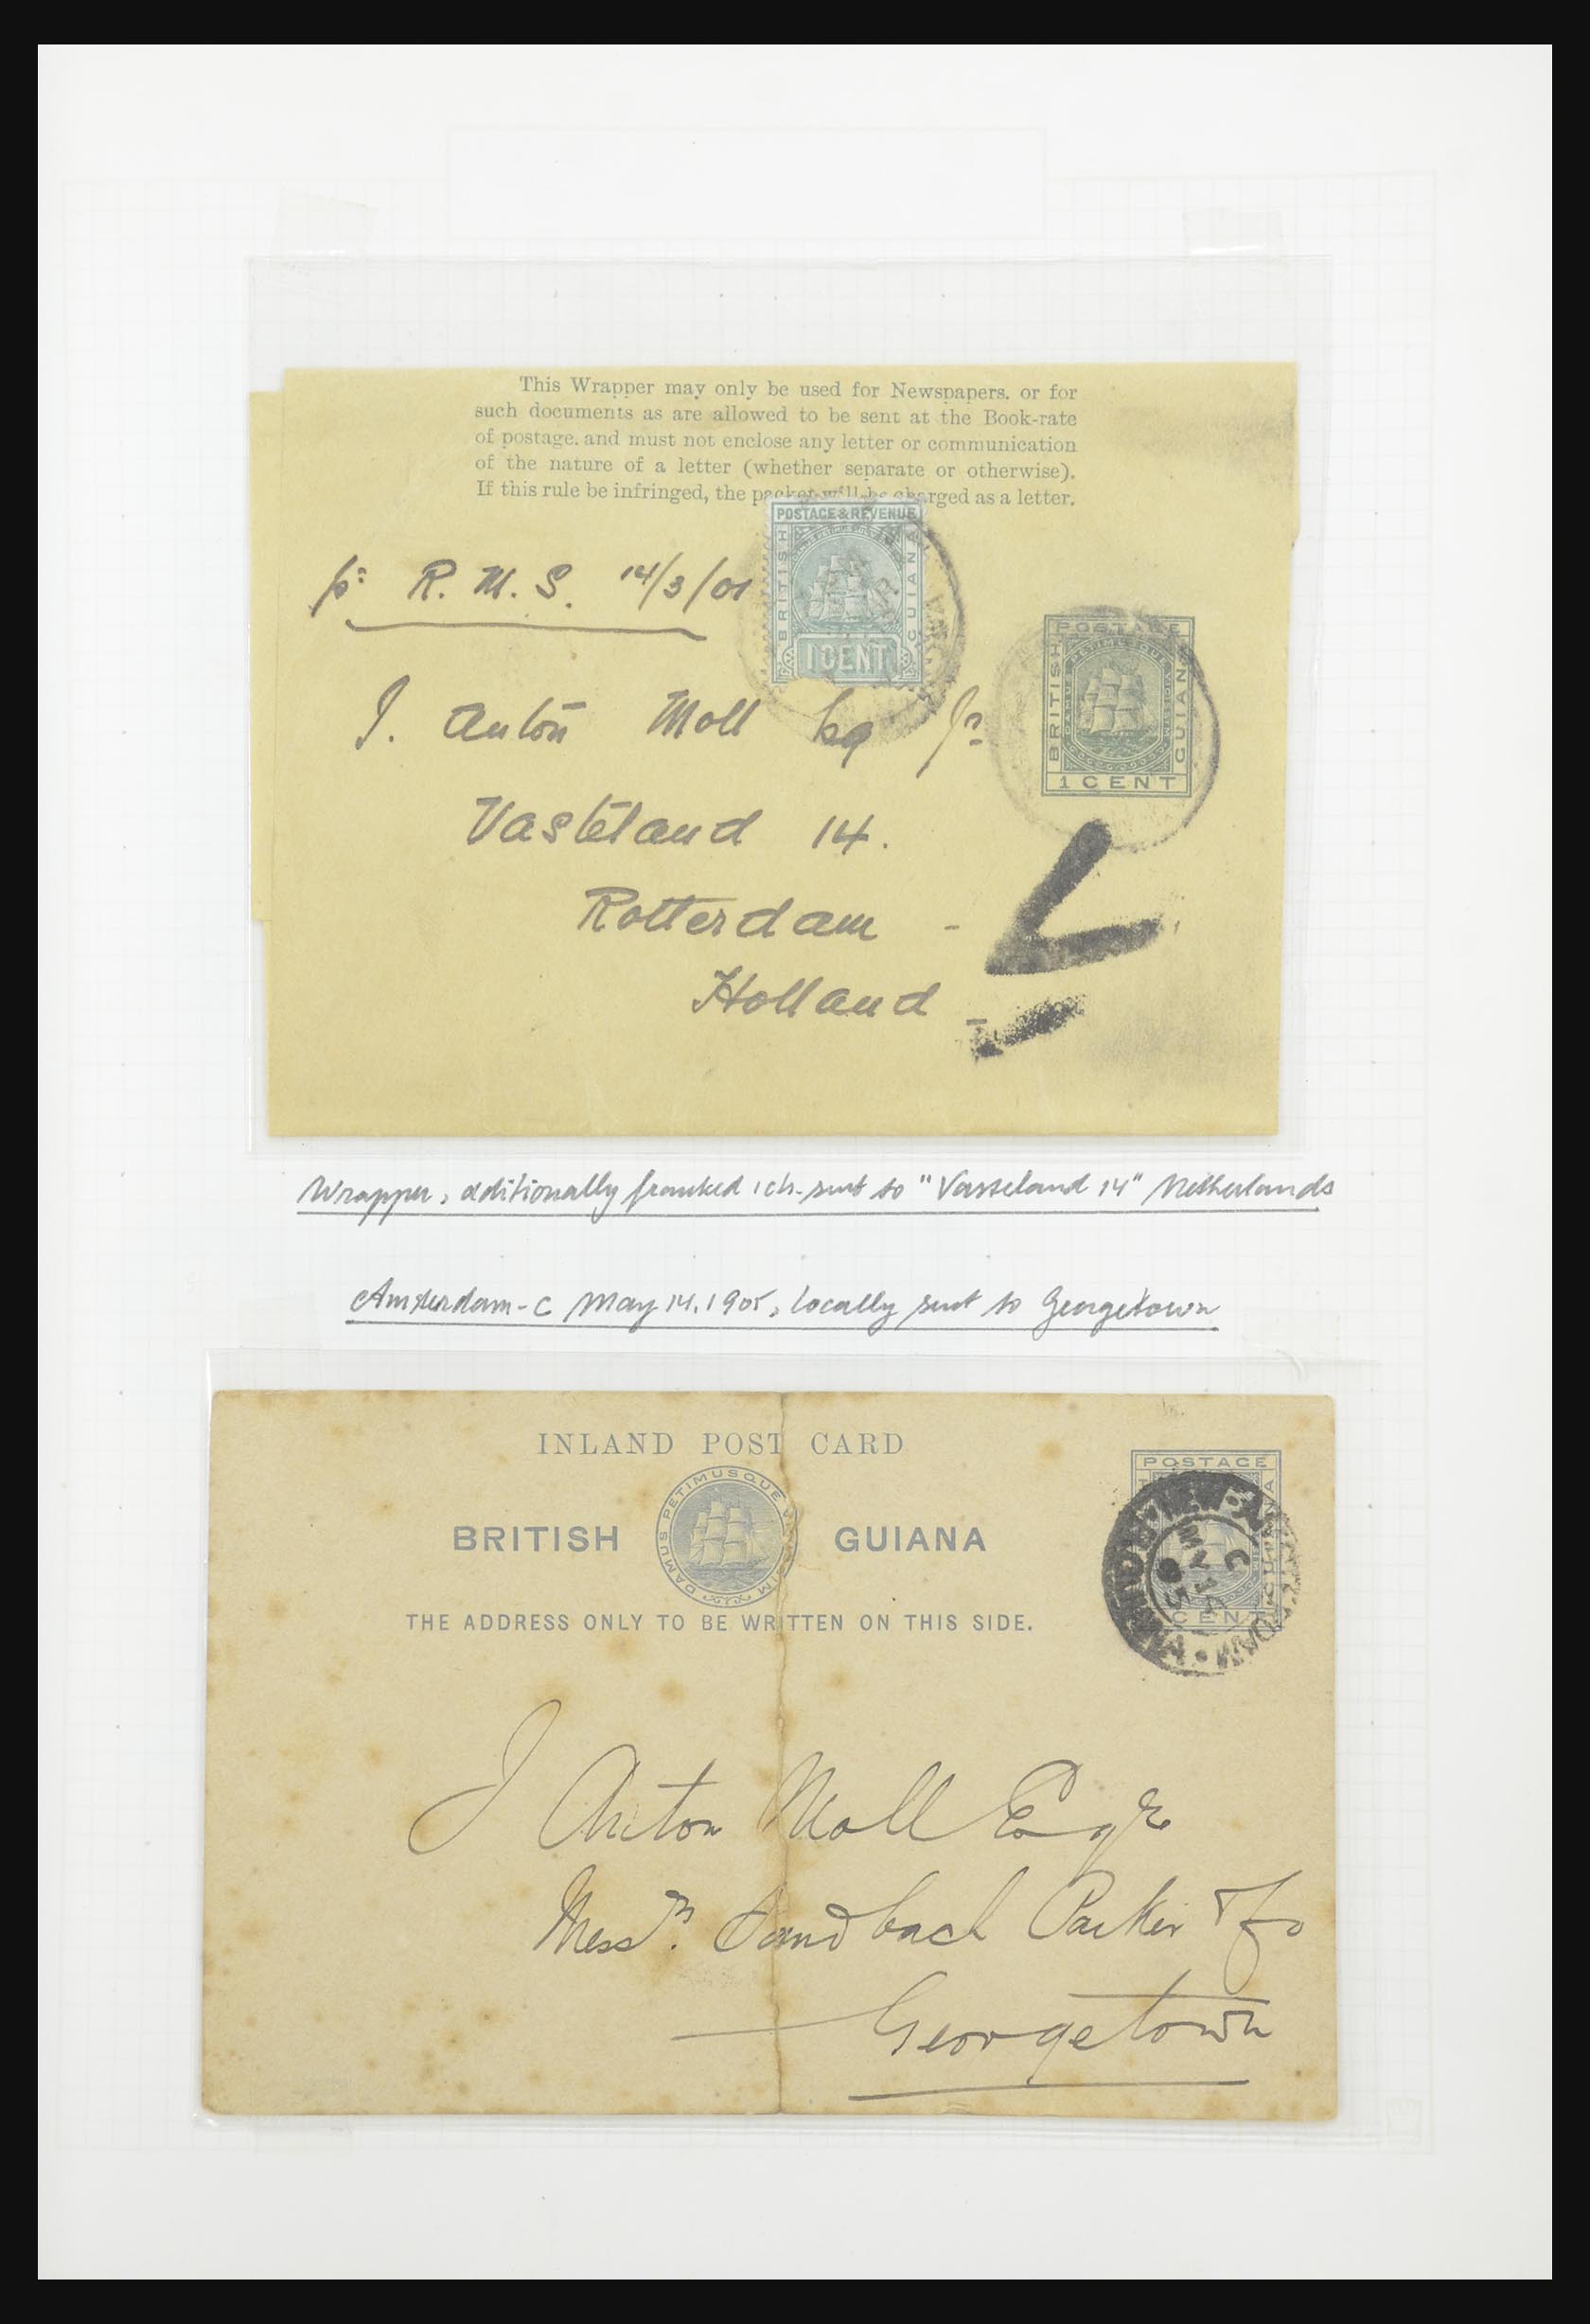 This Wrapper may only be used for Newspapers, or for
such documents as are allowed to be sent at the Book-rate
of postage, and must not enclose any letter or communication
of the nature of a letter (whether separate or otherwise).
If this rule be infringed, the packet will be charged as a letter.
POSTAGE & REVENUE
BRITISH
GUIANA
1 CENT
p: R. M. S. 14/3/01
POSTAGE
BRITISH
GUIANA
DAMUS PETIMUSQUE VICISSIM
1 CENT
J. Anton Moll Esq Jr
Vasteland 14.
Rotterdam -
Holland -
Wrapper, additionally franked 1 ct. sent to "Vasteland 14" Netherlands
Amsterdam-C May 14, 1905, locally sent to Georgetown
INLAND POST CARD
BRITISH GUIANA
DAMUS PETIMUSQUE VICISSIM
THE ADDRESS ONLY TO BE WRITTEN ON THIS SIDE.
POSTAGE
GUIANA
CENT
C
MY 14
05
J Anton Moll Esqre
Messrs. Sandbach Parker & Co
Georgetown